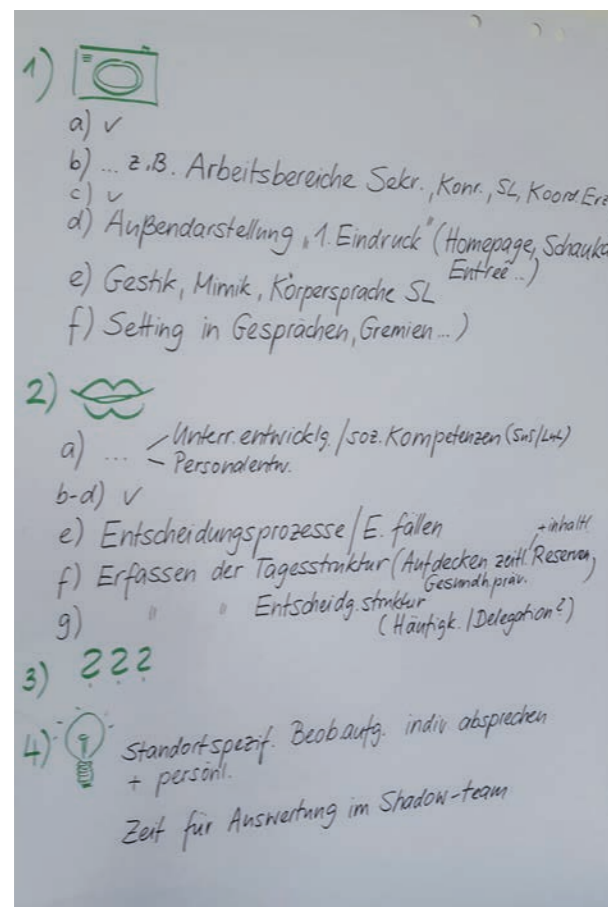 1)
a) ✓
b) ... z.B. Arbeitsbereiche Sekr., Konr., SL, Koord. Erz
c) ✓
d) Außendarstellung „1. Eindruck" (Homepage, Schauka
Entree ..)
e) Gestik, Mimik, Körpersprache SL
f) Setting in Gesprächen, Gremien ... )
2)
a) ... Unterr.entwicklg. / soz. Kompetenzen (SuS/LuL)
Personalentw.
b-d) ✓
e) Entscheidungsprozesse / E. fällen
+ inhaltl
f) Erfassen der Tagesstruktur (Aufdecken zeitl. Reserven,
Gesundh.präv.
g) " " Entscheidg.struktur
(Häufigk. / Delegation?)
3) ???
4) Standortspezif. Beob.aufg. indiv absprechen
+ persönl.
Zeit für Auswertung im Shadow-team